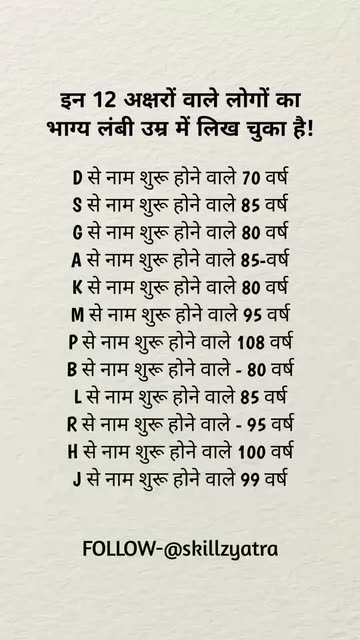 इन 12 अक्षरों वाले लोगों का
भाग्य लंबी उम्र में लिख चुका है!
D से नाम शुरू होने वाले 70 वर्ष
S से नाम शुरू होने वाले 85 वर्ष
G से नाम शुरू होने वाले 80 वर्ष
A से नाम शुरू होने वाले 85-वर्ष
K से नाम शुरू होने वाले 80 वर्ष
M से नाम शुरू होने वाले 95 वर्ष
P से नाम शुरू होने वाले 108 वर्ष
B से नाम शुरू होने वाले - 80 वर्ष
L से नाम शुरू होने वाले 85 वर्ष
R से नाम शुरू होने वाले - 95 वर्ष
H से नाम शुरू होने वाले 100 वर्ष
J से नाम शुरू होने वाले 99 वर्ष
FOLLOW-@skillzyatra